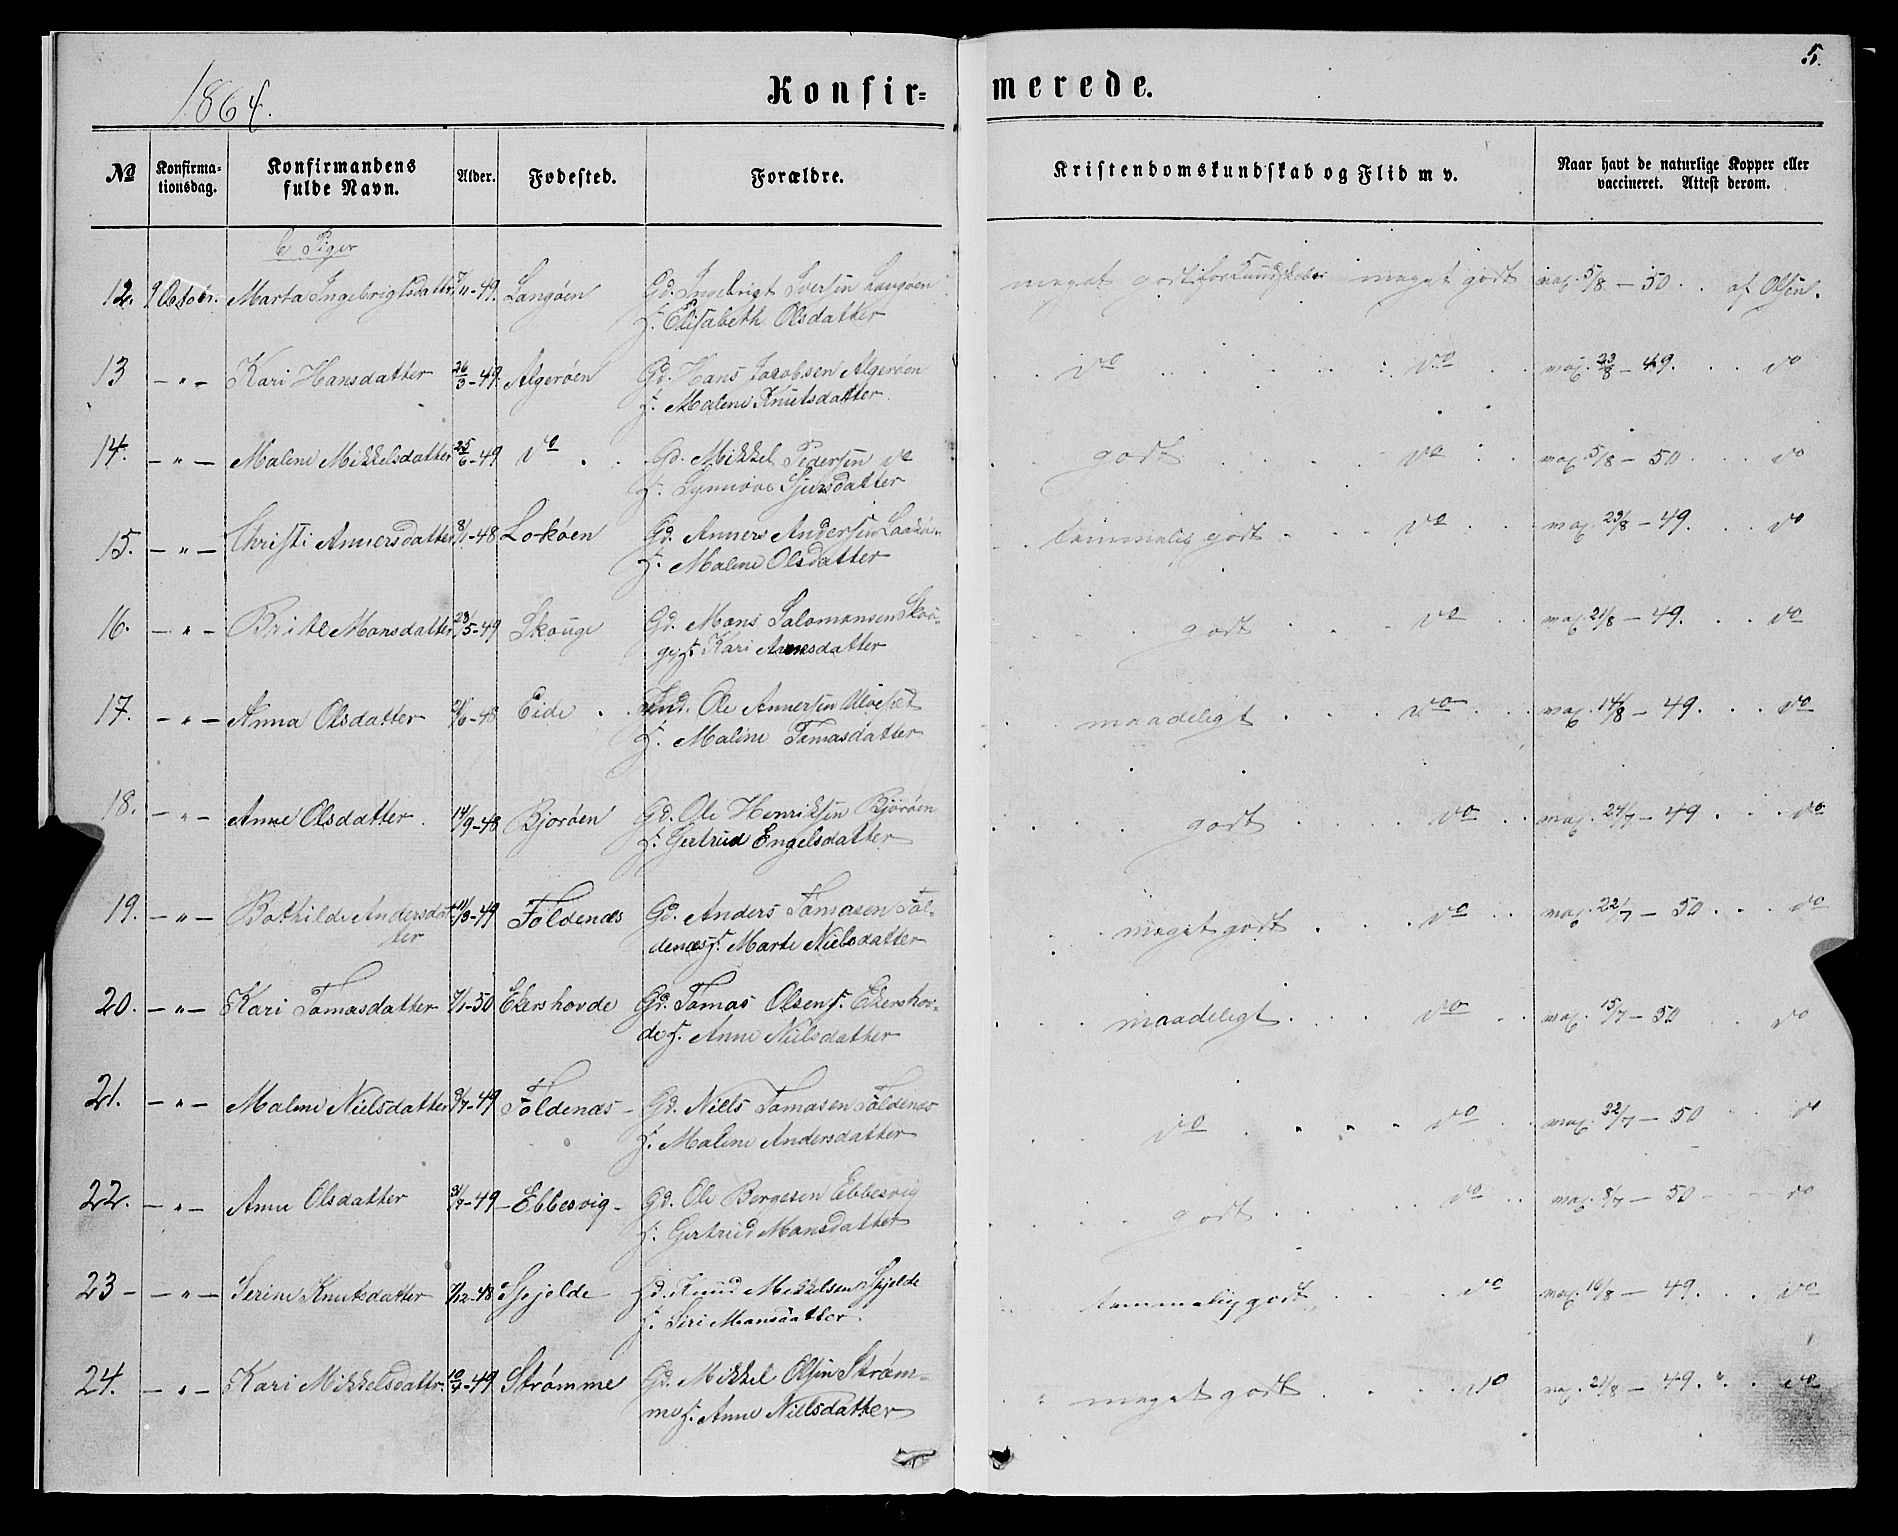 1864.
Konfir=
merede.
5.
No
Konfirma-
tionsdag.
Konfirmandens
fulde Navn.
Alder.
Fødested.
Forældre.
Kristendomskundskab og Flid m v.
Naar havt de naturlige Kopper eller
vaccineret. Attest derom.
Piger
12. 9 Marta Ingebrigtsdatter 7/11-49. Langøen Gd. Ingebrigt Iversen Langøen meget godt meget godt vax. 5/8 - 50 . . af Olsen.
f. Elisabeth Olsdatter
13 - " - Kari Hansdatter 26/3-49. Algerøen Gd. Hans Jacobsen Algerøen do do vax. 23/8 - 49. do
f. Malene Knutsdatter
14. - " - Malene Mikkelsdatter 25/6-49 do Gd. Mikkel Pedersen do godt do vax. 5/8 - 50 do
f. Synnøve Sjursdatter
15. - " - Christi Annersdatter 8/1-48 Lokøen Gd. Anners Andersen temmelig godt do vax. 23/8 - 49. do
f. Malene Olsdatter
16. - " - Brite Mansdatter 23/5-49 Skouge Gd. Mons Salomonsen Skou- godt do vax. 21/8 - 49. do
ge f. Kari
17. - " - Anna Olsdatter Eide Ole Annersen Ulveset maadeligt do vax. 14/8 - 49. do
f. Malene Tomasdatter
18. - " - Anne Olsdatter 14/9-48 Bjorøen Gd. Ole Henriksen Bjorøen godt do vax. 24/7 - 49 do
f. Gertrud Engelsdatter
19. - " - Bothilde Andersdat- 11/3-49 Foldenæs Gd. Anders Tomasen Fol- meget godt do vax. 22/7 - 50 do
ter denæs f. Marte Nielsdatter
20. - " - Kari Tomasdatter 7/1-50 Ekershovde Gd. Tomas Olsen Ekershov- maadeligt do vax. 15/7 - 50 do
de f. Anne Nielsdatter
21. - " - Malene Nielsdatter 9/7-49 Foldenæs - Gd. Niels Tomasen Foldenæs do do vax. 22/7 - 50 do
f. Malene Andersdatter
22. - " - Anne Olsdatter 31/7-49 - Ebbesvig - Gd. Ole Borgesen Ebbesvig godt do vax. 8/7 - 50 do
f. Gertrud Monsdatter
23 - - " - Serine Knutsdatter 7/12-48 Spjelde Gd. Knud Mikkelsen Spjelde temmelig godt do vax. 16/8 - 49. do
f. Siri Monsdatter
24. - " - Kari Mikkelsdattr. 10/7-49 Strømme Gd. Mikkel Olsen Strøm- meget godt do vax. 21/8 - 49. do
me f. Anne Nielsdatter